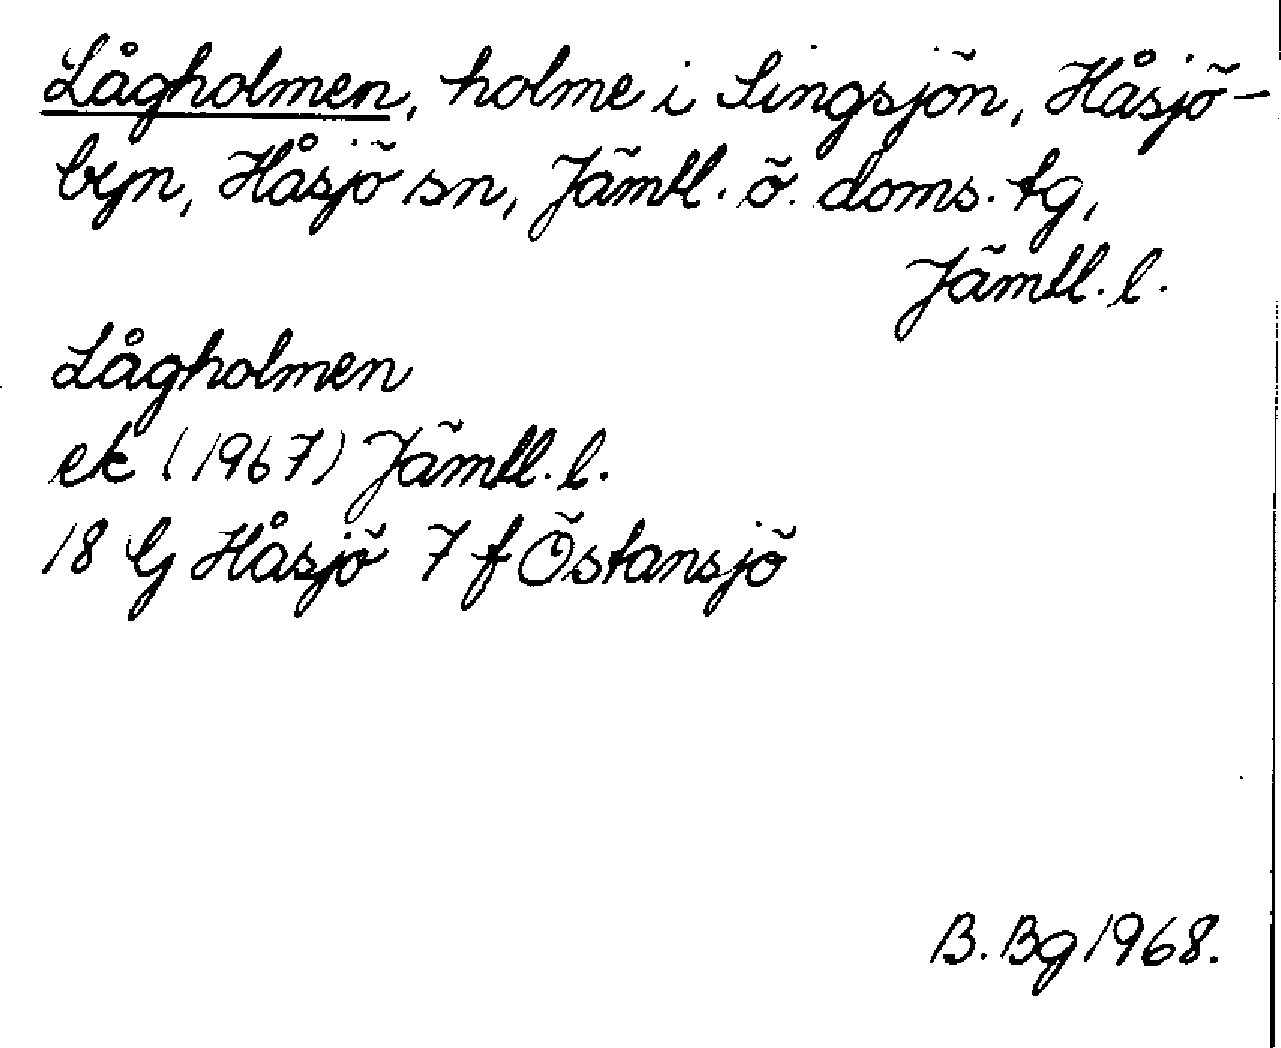 Lågholmen, holme i Singsjön, Håsjö-
byn, Håsjö sn, Jämtl. ö. doms. tg,
Jämtl. l.
Lågholmen
ek (1967) Jämtl. l.
18 G Håsjö 7 f Östansjö
B. Bg 1968.